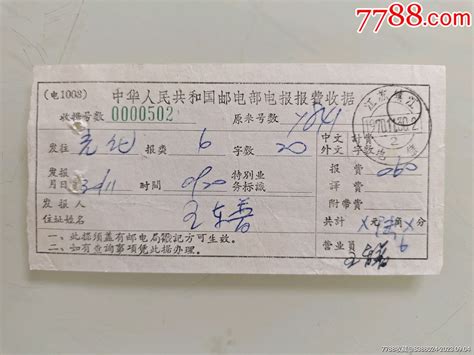 7788.com
(电1008) 中华人民共和国邮电部电报报费收据
收据号数 0000502 原来号数 7841
发往 报类 6 字数 20
中文 计费
外文 字数
发报
月日 30/11 时间 0920 特别业
务标识
报费 060
译费
附带费
发报人
住址姓名 王东普
共计 X元 角X分
一、此据须盖有邮电局戳记方可生效。
二、如有查询事项凭此据办理。
营业员
7788收藏